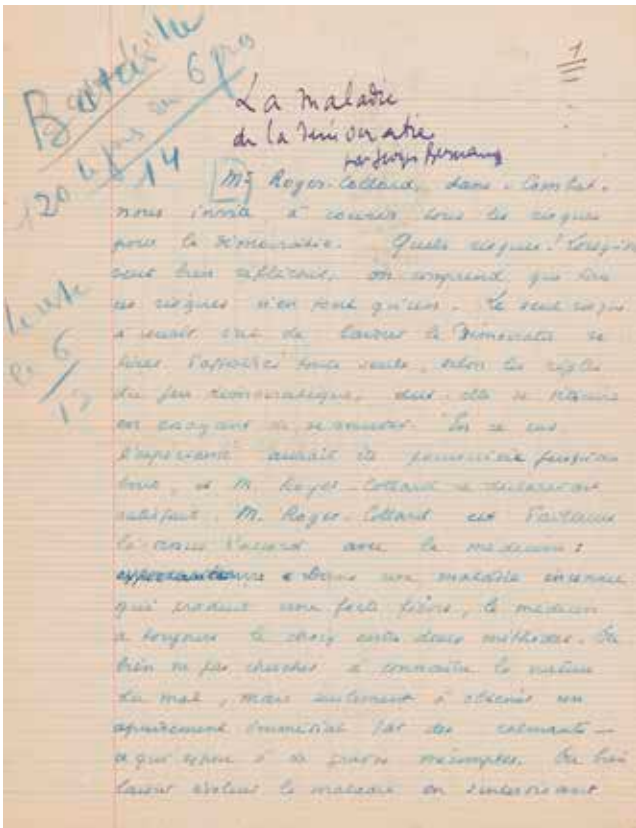 Bataille
1
La maladie
de la Démocratie
par Georges Bernanos
14
M. Royer-Collard, dans "Combat",
nous invita à courir tous les risques
pour la Démocratie. Quels risques? Lorsqu'on
veut bien réfléchir, on comprend que tous
ces risques n'en font qu'un. Le seul risque
à courir est de laisser la Démocratie se
tirer d'affaire toute seule, selon les règles
du jeu démocratique, dût-elle se détruire
en essayant de se sauver. En ce cas
l'expérience aurait été poursuivie jusqu'au
bout, et M. Royer-Collard se déclarerait
satisfait. M. Royer-Collard est d'ailleurs
là-dessus d'accord avec le médecin :
"Dans une maladie inconnue
qui produit une forte fièvre, le médecin
a toujours le choix entre deux méthodes. Ou
bien ne pas chercher à connaître la nature
du mal, mais seulement à obtenir un
apaisement immédiat par des calmants —
ce qui expose à de graves mécomptes. Ou bien
laisser évoluer la maladie en n'intervenant